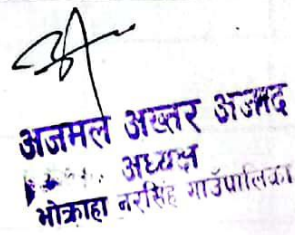 अजमल अख्तर अजाद
अध्यक्ष
भोक्राहा नरसिंह गाउँपालिका